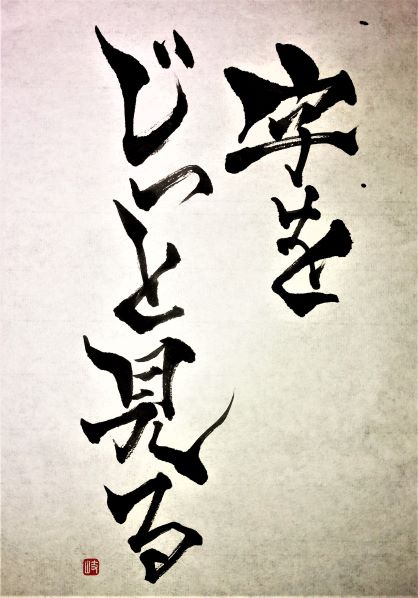 字を
じっと見る